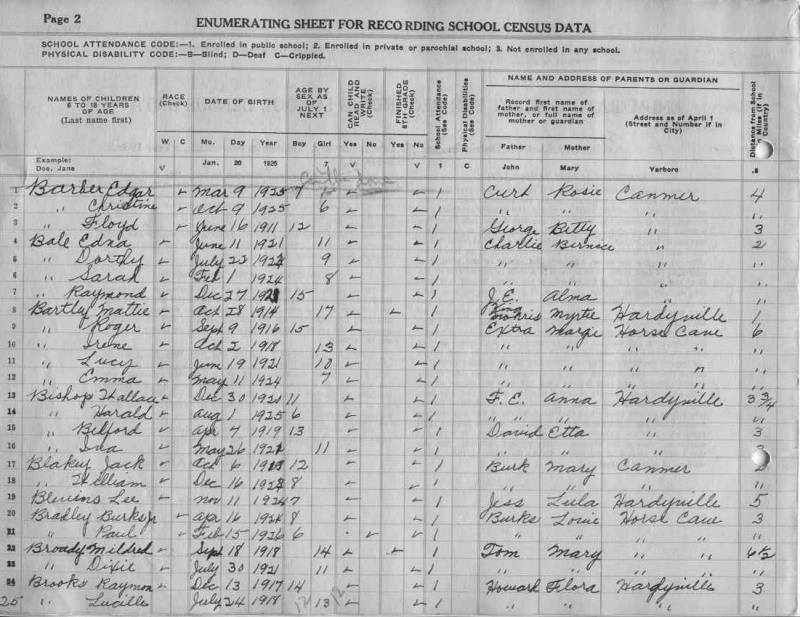 Page 2
ENUMERATING SHEET FOR RECORDING SCHOOL CENSUS DATA
SCHOOL ATTENDANCE CODE:—1. Enrolled in public school; 2. Enrolled in private or parochial school; 3. Not enrolled in any school.
PHYSICAL DISABILITY CODE:—B—Blind; D—Deaf C—Crippled.
NAMES OF CHILDREN 6 TO 18 YEARS OF AGE (Last name first) RACE (Check) DATE OF BIRTH AGE BY SEX AS OF JULY 1 NEXT CAN CHILD READ AND WRITE (Check) FINISHED 8TH GRADE (Check) School Attendance (See Code) Physical Disabilities (See Code) NAME AND ADDRESS OF PARENTS OR GUARDIAN Distance from School in Miles (If in Country)
Record first name of father and first name of mother, or full name of mother or guardian Address as of April 1 (Street and Number if in City)
W C Mo. Day Year Boy Girl Yes No Yes No Father Mother
Example: Doe, Jane V Jan. 20 1925 7 V V 1 C John Mary Yarboro .8
1 Barber Edgar Mar 9 1925 7 1 Curt Rosie Canmer 4
2 " Christine Oct 9 1925 6 1 " " " "
3 " Floyd June 16 1911 12 1 George Betty " 3
4 Bale Edna June 11 1921 11 1 Charlie Bernice " 2
5 " Dorthy July 22 9 1 " " " "
6 " Sarah Feb 1 1924 8 1 " " " "
7 " Raymond Dec 27 15 1 J.E. Alma " "
8 Bartley Mattie Oct 28 1914 17 1 Myrtie Hardyville 1
9 " Roger Sept 9 1916 15 1 Extra Margie Horse Cave 6
10 " Irene Oct 2 1918 13 1 " " " "
11 " Lucy June 19 1921 10 1 " " " "
12 " Emma May 11 1924 7 1 " " " "
13 Bishop Wallace Dec 30 1920 11 1 F.E. Anna Hardyville 3 3/4
14 " Harald Aug 1 1925 6 1 " " " "
15 " Belford Apr 7 1919 13 1 David Etta " 3
16 " Iva May 26 11 1 " " "
17 Blakey Jack Oct 6 12 1 Burk Mary Canmer
18 " William Dec 16 8 1 " " " "
19 Blevins Lee Nov 11 1924 7 1 Jess Lula Hardyville 5
20 Bradley Burks Jr Apr 16 8 1 Burks Horse Cave 3
21 " Paul Feb 15 1926 6 1 " " " "
22 Broady Mildred Sept 18 1918 14 1 Tom Mary " " 6 1/2
23 " Dixie July 30 1921 11 1 " " " "
24 Brooks Raymon Dec 13 1917 14 1 Howard Flora Hardyville 3
25 " Lucille July 24 1918 13 1 " " " "